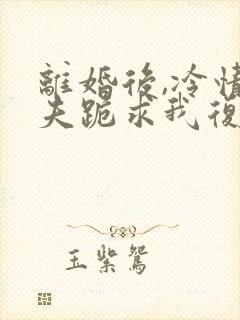 離婚後,冷情
夫跪求我復
玉紫鴛